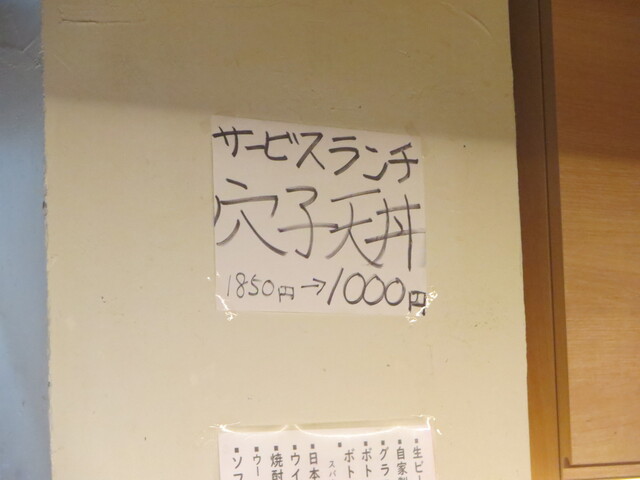 サービスランチ
穴子天丼
1850円→1000円
■生ビー
■自家製
■グラ
■ボト
■ボト
スパ
■日本
■ウイ
■焼酎
■ウー
■ソフ